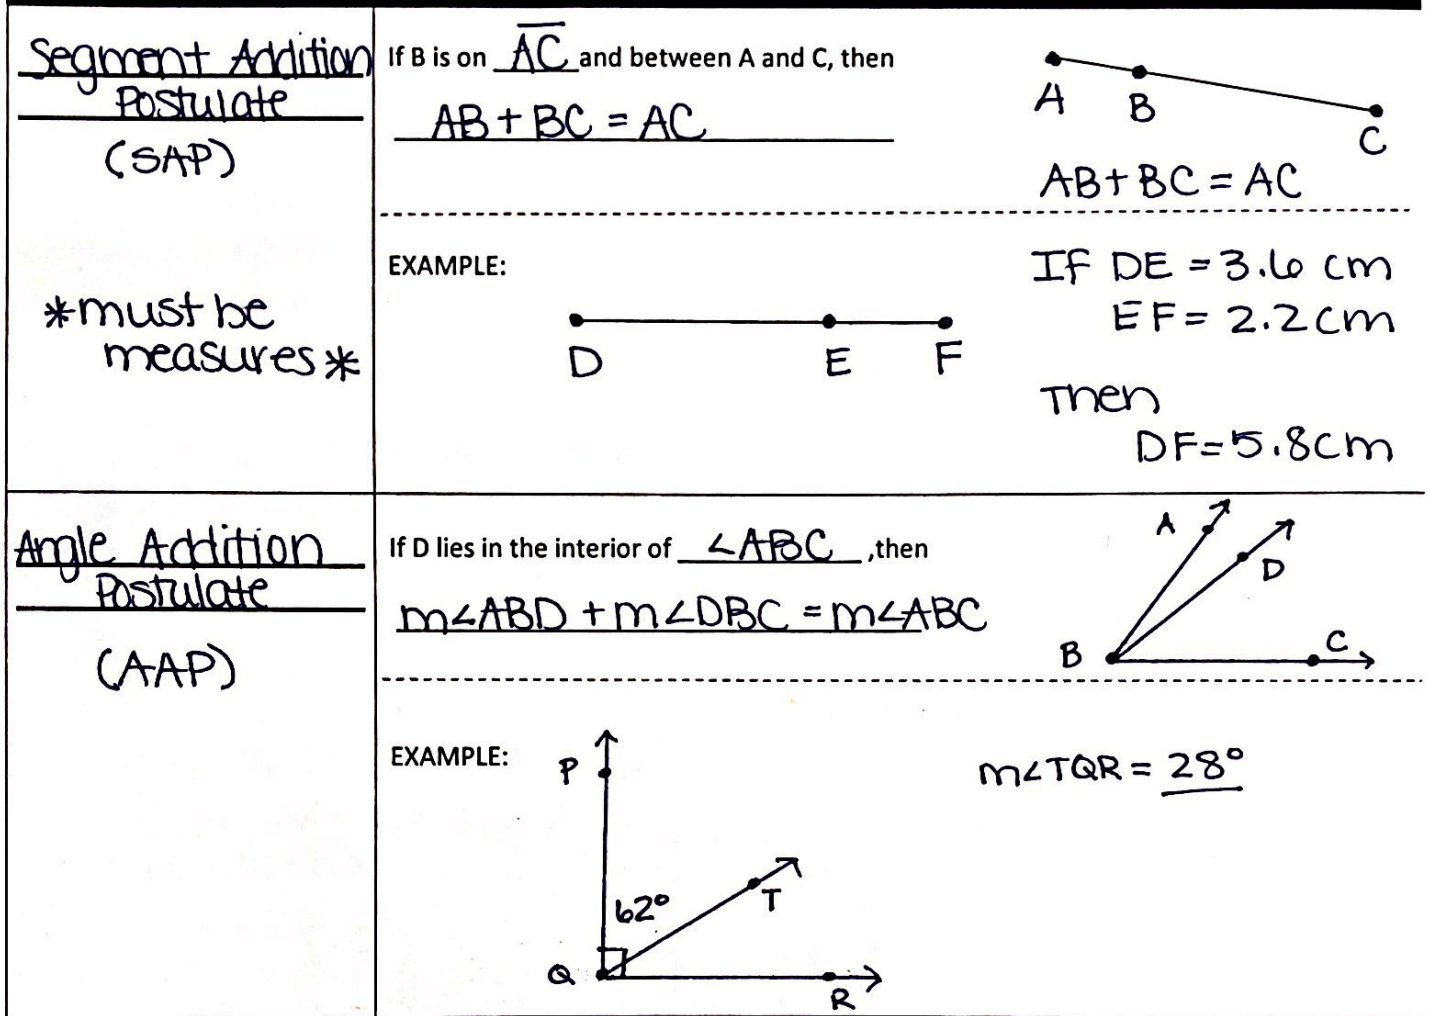 Segment Addition
Postulate
(SAP)
*must be
measures*
If B is on AC and between A and C, then
AB + BC = AC
A
B
C
AB + BC = AC
EXAMPLE:
D
E
F
If DE = 3.6 cm
EF = 2.2 cm
Then
DF = 5.8 cm
Angle Addition
Postulate
(AAP)
If D lies in the interior of ∠ABC, then
m∠ABD + m∠DBC = m∠ABC
A
D
B
C
EXAMPLE:
P
62°
T
Q
R
m∠TQR = 28°